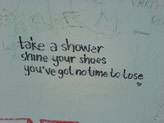 take a shower
shine your shoes
you've got no time to lose